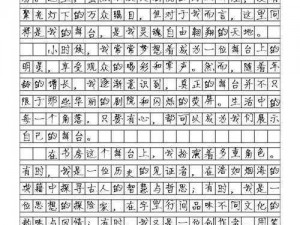 聚光灯下的万众瞩目,但对于我而言,这里同
样是我的舞台,是我灵魂自由翱翔的天地。
小时候,我常常梦想着成为一位舞台上的
明星,享受观众的喝彩和掌声。然而,随着年
龄的增长,我逐渐意识到,真正的舞台并不只
限于那些华丽的剧院和闪烁的荧屏。生活中的
每一个角落,只要有心,都可以成为我们展示
自己的舞台。
在书房这个舞台上,我扮演着多重角色。
有时,我是一位历史的见证者,在浩如烟海的
典籍中探寻古人的智慧与哲思;有时,我是一
位思想的探险家,在字里行间品味不同文化的
韵味与